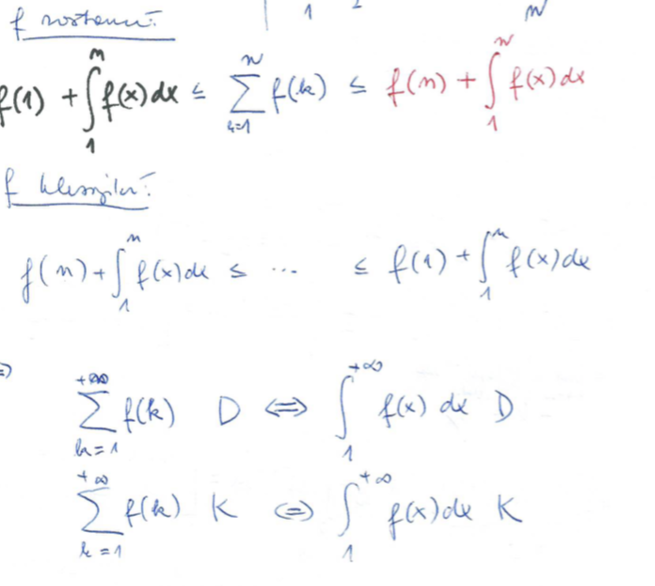 1
n
f rostoucí:
f(1) + ∫₁ⁿ f(x)dx ≤ ∑ₖ₌₁ⁿ f(k) ≤ f(n) + ∫₁ⁿ f(x)dx
f klesající:
f(n) + ∫₁ⁿ f(x)dx ≤ ... ≤ f(1) + ∫₁ⁿ f(x)dx
∑ₖ₌₁^{+∞} f(k) D ⇔ ∫₁^{+∞} f(x) dx D
∑ₖ₌₁^{+∞} f(k) K ⇔ ∫₁^{+∞} f(x)dx K